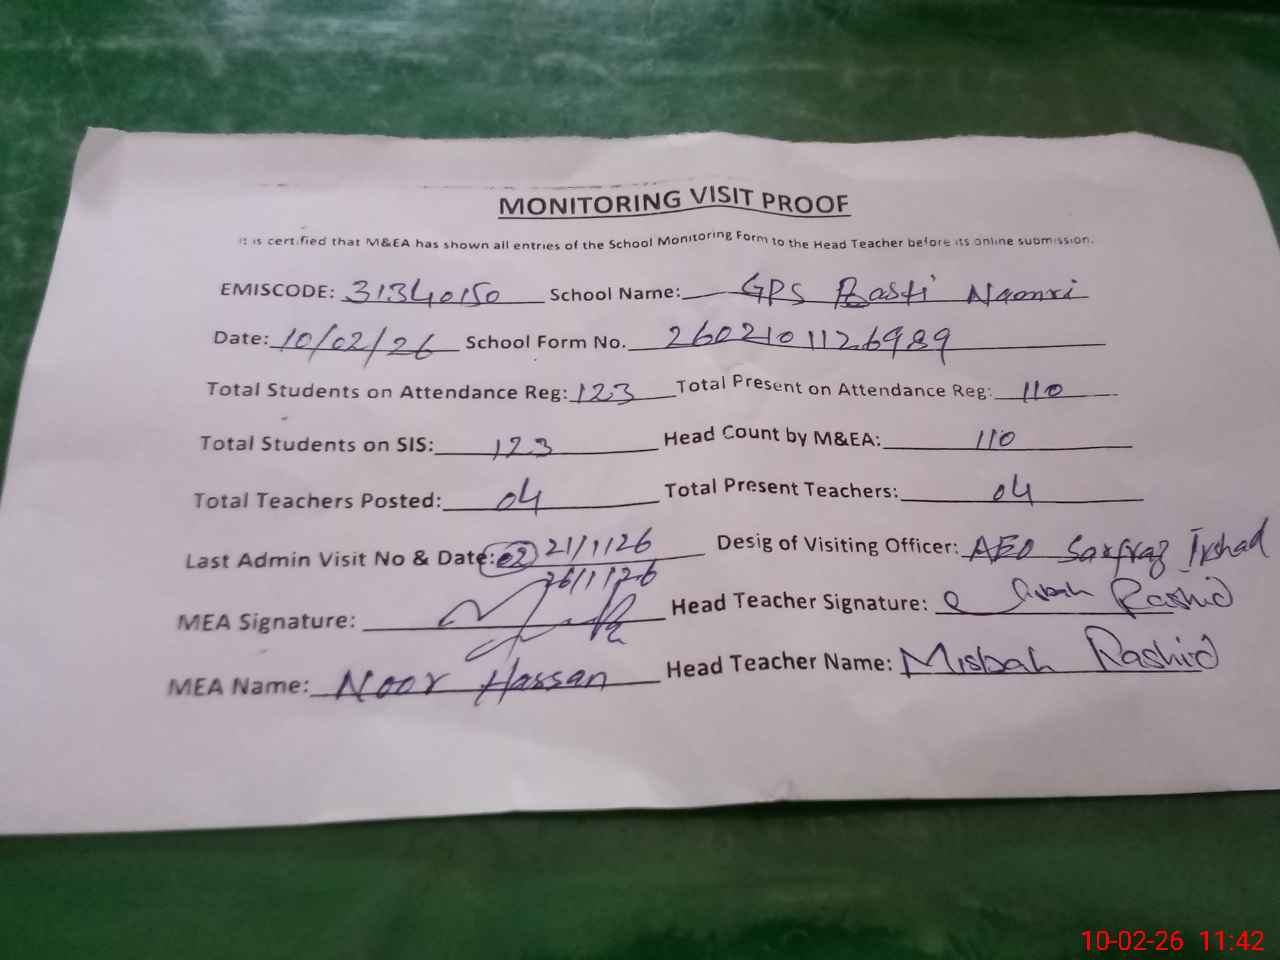 MONITORING VISIT PROOF
It is certified that M&EA has shown all entries of the School Monitoring Form to the Head Teacher before its online submission.
EMISCODE: 31340150 School Name: GPS Basti
Date: 10/02/26 School Form No. 2602101126989
Total Students on Attendance Reg: 123 Total Present on Attendance Reg: 110
Total Students on SIS: 123 Head Count by M&EA: 110
Total Teachers Posted: 04 Total Present Teachers: 04
Last Admin Visit No & Date: 02 21/1/26 Desig of Visiting Officer: AEO Sarfraz Irshad
26/1/26
MEA Signature: Head Teacher Signature: Rashid
MEA Name: Noor Hassan Head Teacher Name: Misbah Rashid
10-02-26 11:42